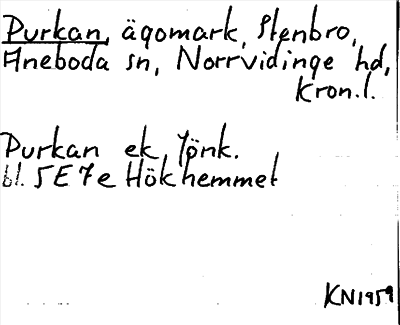 Purkan, ägomark, Stenbro,
Aneboda sn, Norrvidinge hd,
Kron.l.
Purkan ek. Jönk.
bl. 5E7e Hökhemmet
KN1959